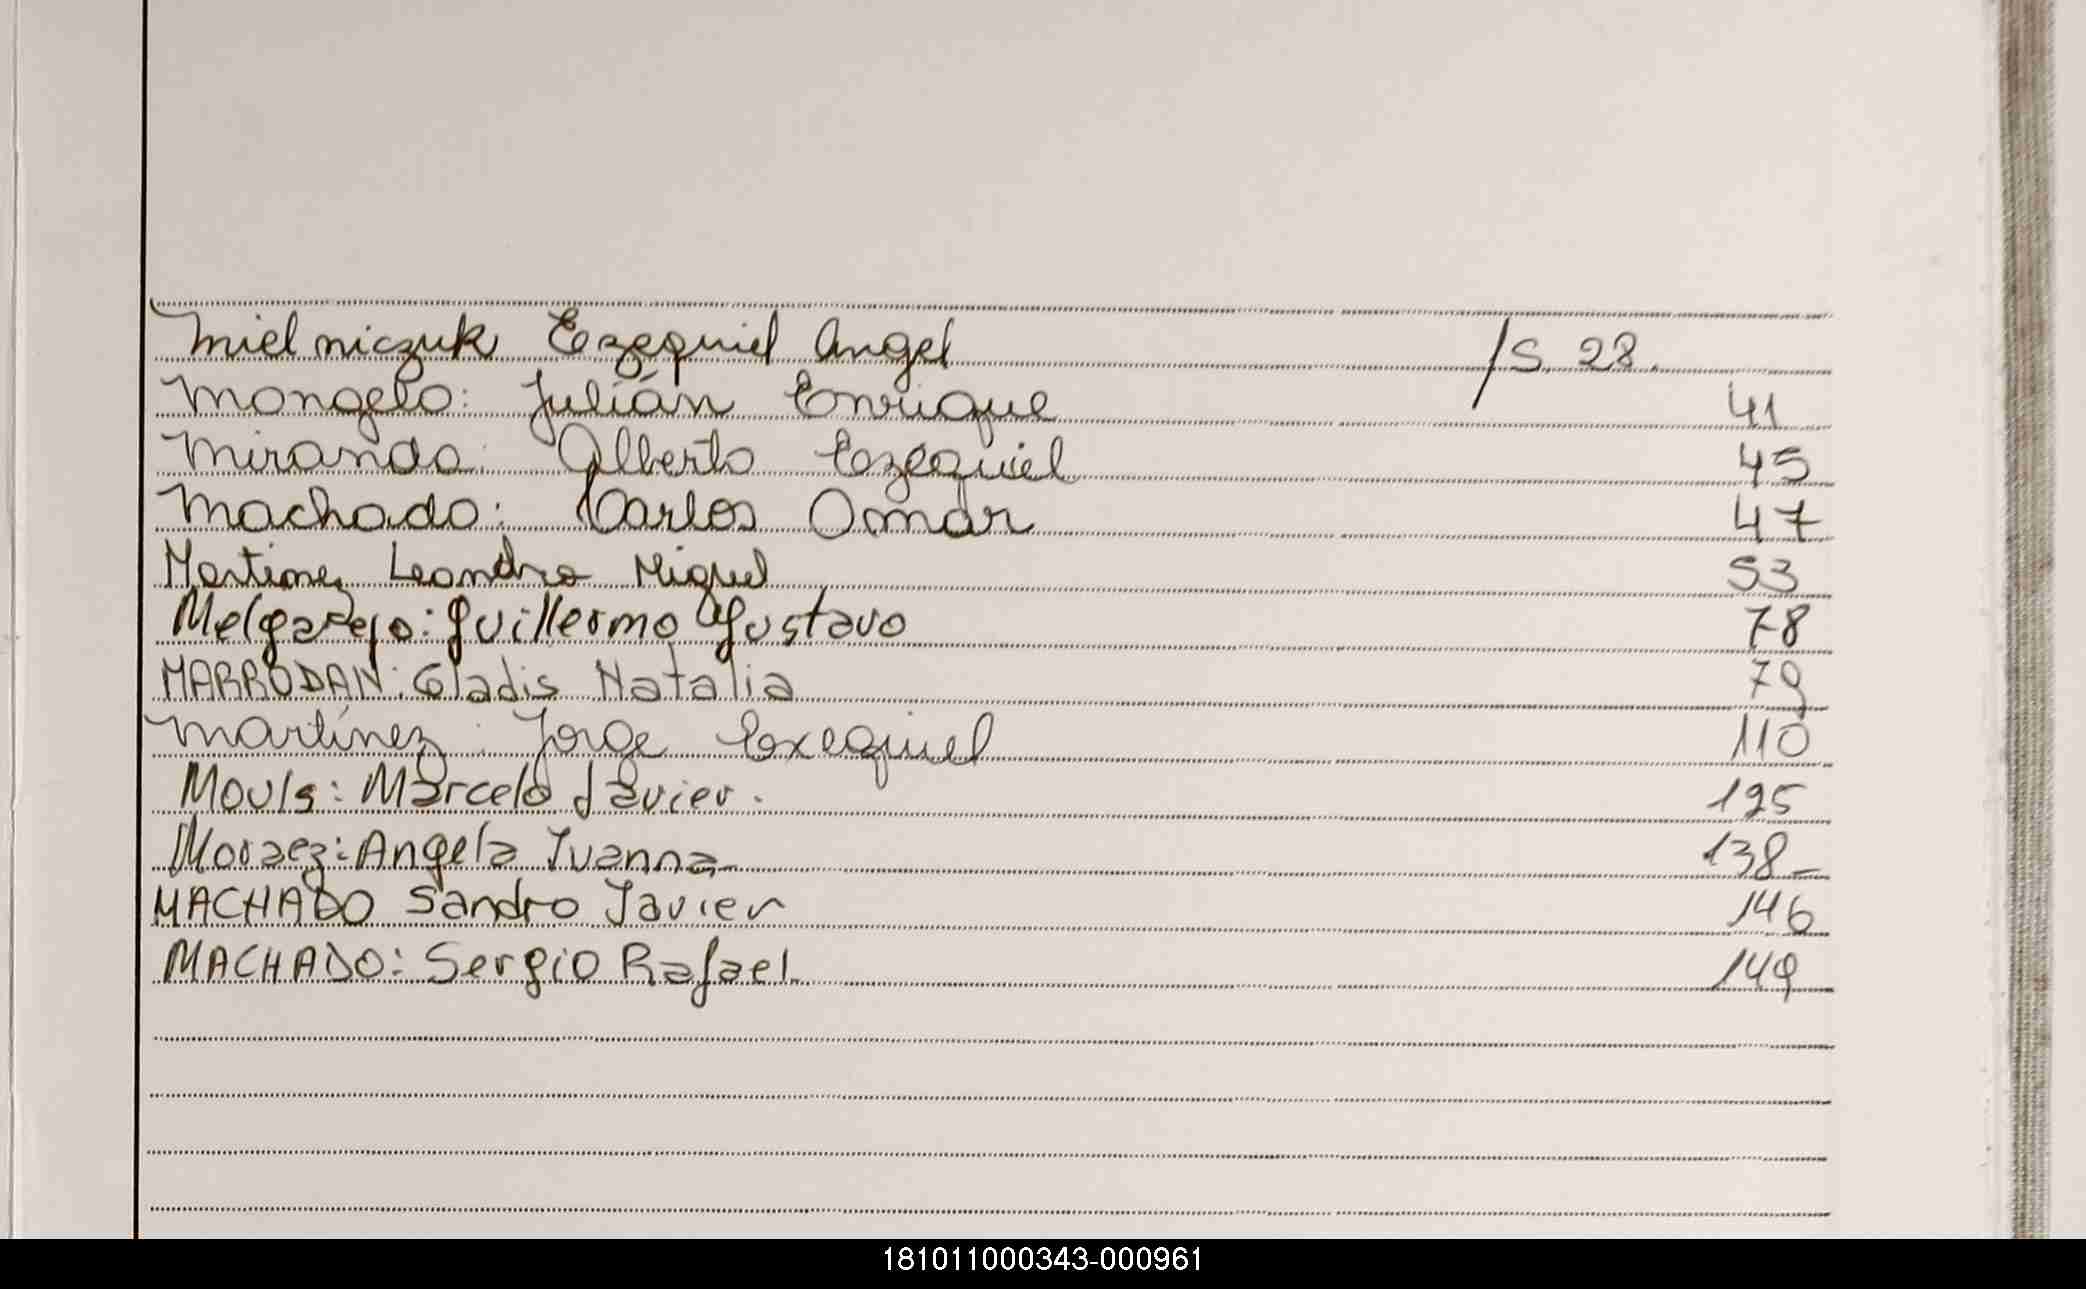 Mielniczuk Ezequiel Angel /S. 28.
Mongelo: Julián Enrique 41
Miranda: Alberto Ezequiel 45
Machado: Carlos Omar 47
Martinez Leandro Miguel 53
Melgarejo: Guillermo Gustavo 78
MARRODAN: Gladis Natalia 79
Martínez: Jorge Exequiel 110
Mouls: Marcelo Javier. 125
Moraez: Angela Ivanna 138-
MACHADO Sandro Javier 146
MACHADO: Sergio Rafael. 149
181011000343-000961